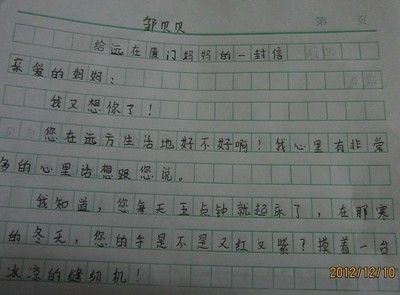 邹贝贝
第 页
给远在厦门妈妈的一封信
亲爱的妈妈：
我又想你了！
您在远方生活地好不好啊！我心里有非常
多的心里话想跟您说。
我知道，您每天五点钟就起床了，在那寒
的冬天，您的手是不是又红又紫？摸着一台
冰凉的缝纫机！
2012/12/10